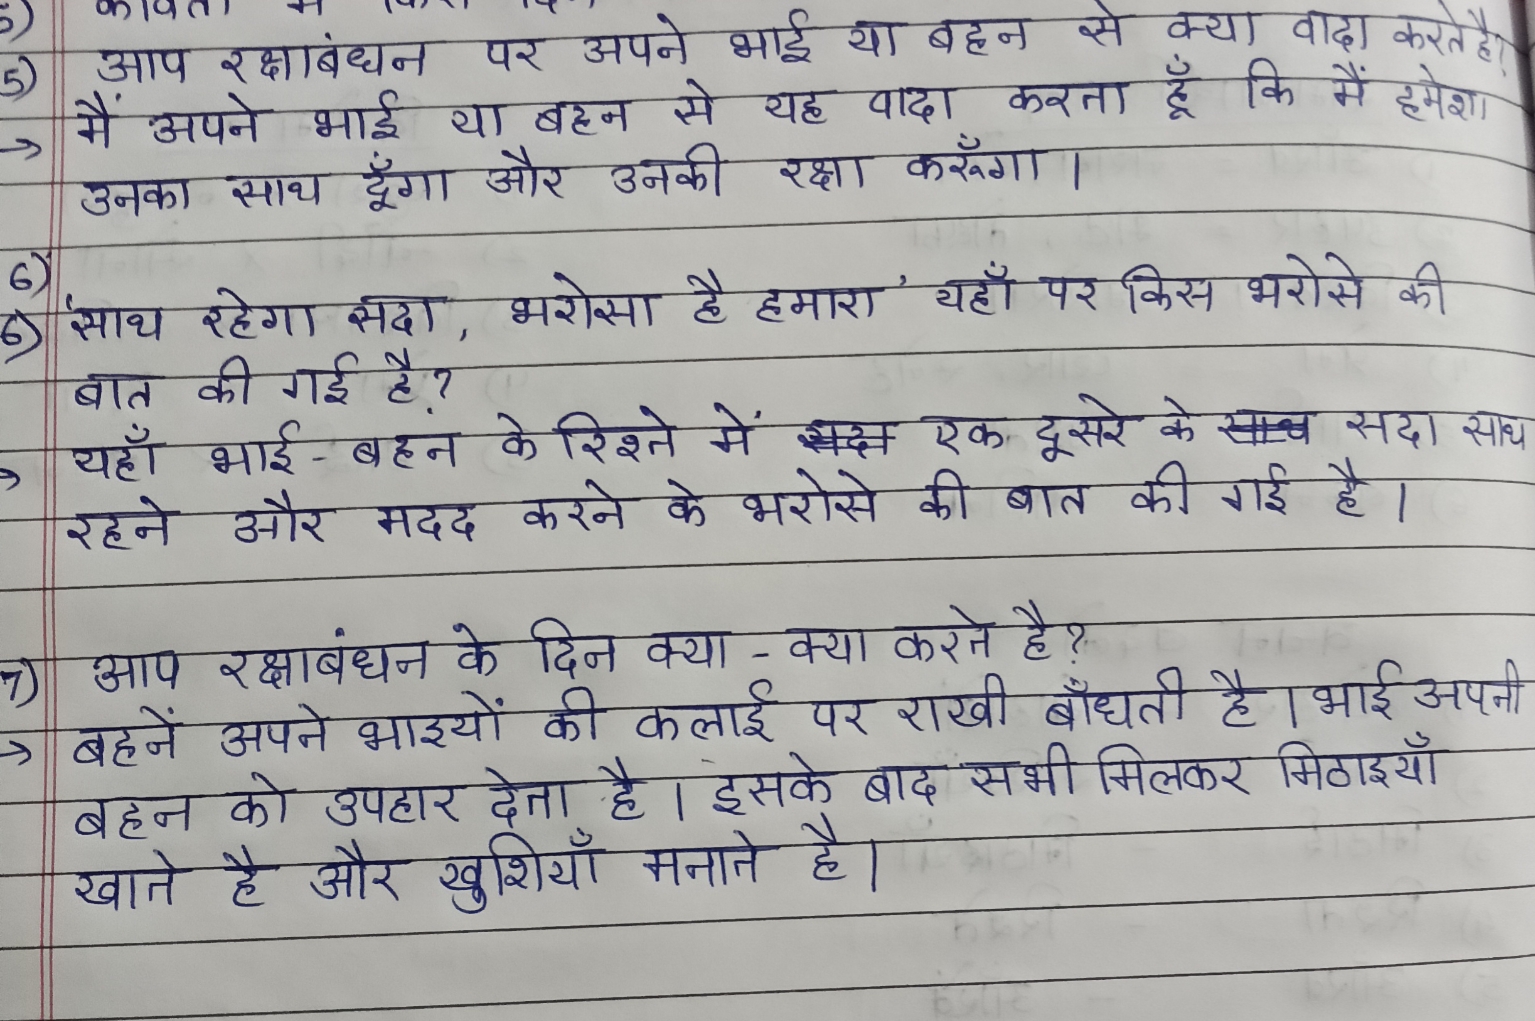 5) आप रक्षाबंधन पर अपने भाई या बहन से क्या वादा करते है?
→ मैं अपने भाई या बहन से यह वादा करता हूँ कि मैं हमेशा
उनका साथ दूँगा और उनकी रक्षा करूँगा।
6)
6) 'साथ रहेगा सदा, भरोसा है हमारा' यहाँ पर किस भरोसे की
बात की गई है?
→ यहाँ भाई - बहन के रिश्ते में एक दूसरे के सदा साथ
रहने और मदद करने के भरोसे की बात की गई है।
7) आप रक्षाबंधन के दिन क्या - क्या करते है?
→ बहनें अपने भाइयों की कलाई पर राखी बाँधती है। भाई अपनी
बहन को उपहार देता है। इसके बाद सभी मिलकर मिठाइयाँ
खाते है और खुशियाँ मनाते है।